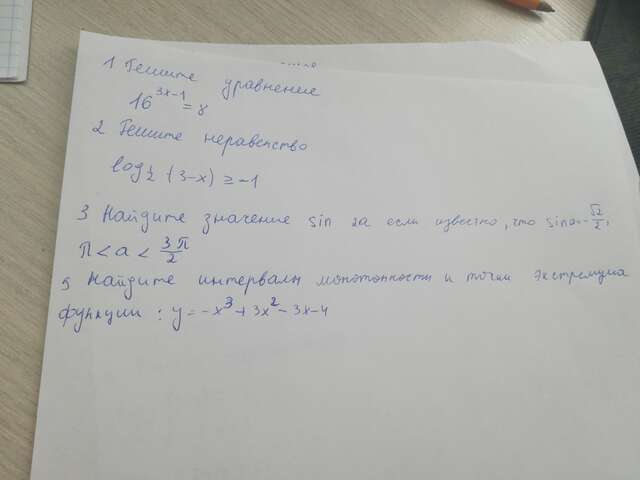 1 Решите уравнение
16^{3x-1} = 8
2 Решите неравенство
log_{1/2} (3-x) ≥ -1
3 Найдите значение sin 2a если известно, что sin a = -\frac{√2}{2},
π < a < \frac{3π}{2}
5 Найдите интервалы монотонности и точки экстремума
функции : y = -x^3 + 3x^2 - 3x - 4